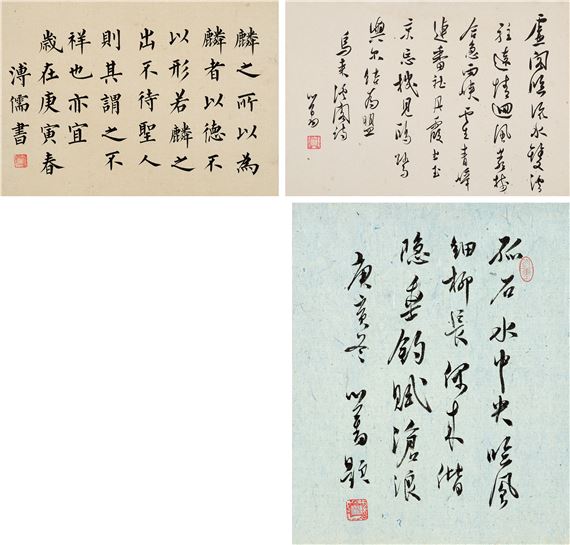 麟之所以為
麟者以德不
以形若麟之
出不待聖人
則其謂之不
祥也亦宜
歲在庚寅春
溥儒書
虛閣臨流水雙溪
駐遠情迴風叢樹
合急雨雲青嶂
連番社丹霞出玉
京忘機見鷗鷺
與尔結為盟
烏來溪閣詩
心畬
孤石水中央吟風
細柳長來偕
隱垂釣賦滄浪
庚寅冬心畬題